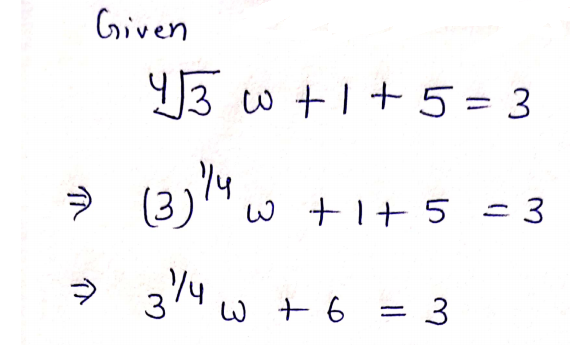 Given
∜3 w + 1 + 5 = 3
⇒ (3)^1/4 w + 1 + 5 = 3
⇒ 3^1/4 w + 6 = 3